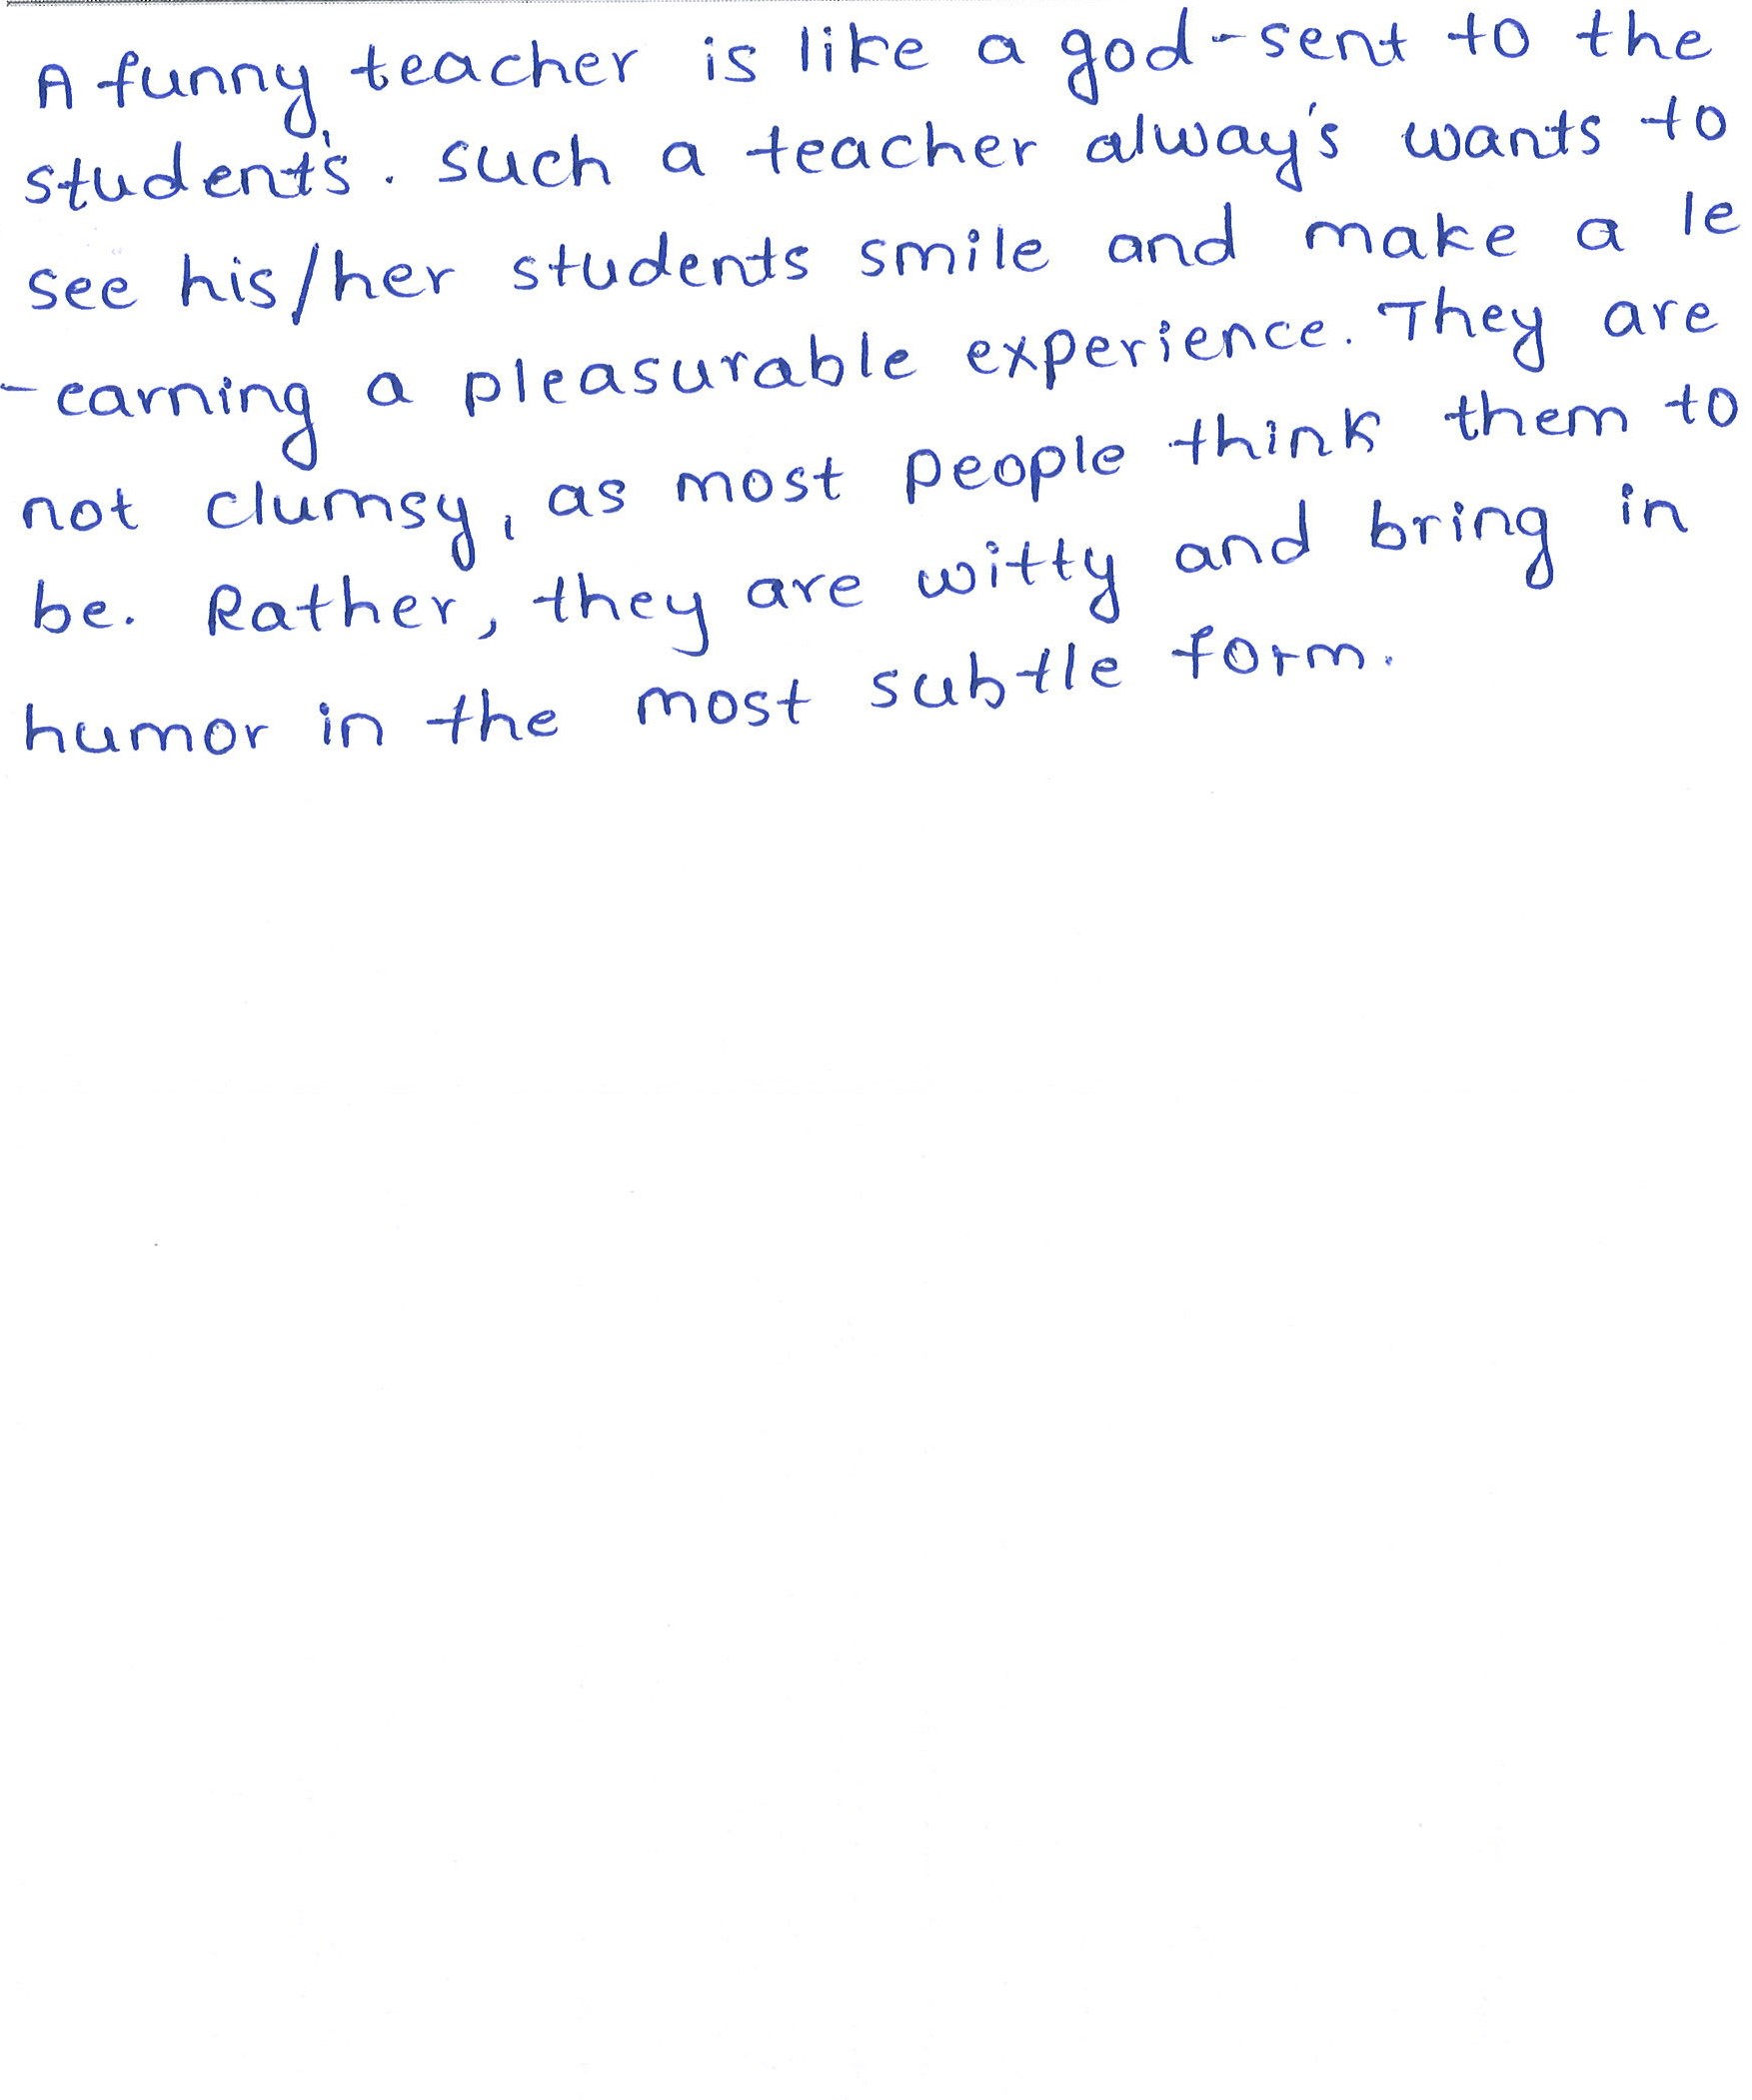 A funny teacher is like a god-sent to the
student's. such a teacher alway's wants to
see his/her students smile and make a le
-earning a pleasurable experience. They are
not clumsy, as most people think them to
be. Rather, they are witty and bring in
humor in the most subtle form.